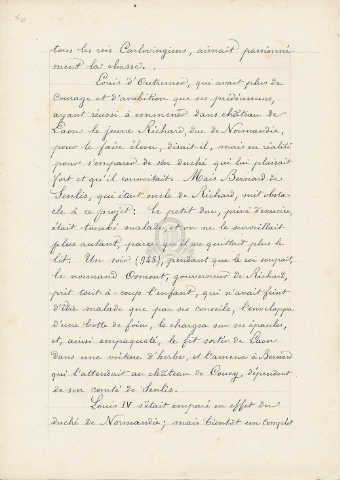 tous les rois Carlovingiens, aimait passionné
ment la chasse.
Louis d'Outremer, qui avait plus de
courage et d'ambition que ses prédécesseurs,
ayant réussi à emmener dans château de
Laon le jeune Richard, duc de Normandie,
pour le faire élever, disait-il, mais en réalité
pour s'emparer de son duché qui lui plaisait
fort et qu'il convoitait. Mais Bernard de
Senlis, qui était oncle de Richard, mit obsta-
cle à ce projet: le petit duc, privé d'exercice,
était tombé malade, et on ne le surveillait
plus autant, parce qu'il ne quittait plus le
lit. Un soir (945), pendant que le roi soupait,
le normand Osmont, gouverneur de Richard,
prit tout-à-coup l'enfant, qui n'avait feint
d'être malade que par ses conseils, l'enveloppa
d'une botte de foin, le chargea sur ses épaules,
et, ainsi empaqueté, le fit sortir de Laon
dans une voiture d'herbe, et l'amena à Bernard
qui l'attendait au château de Coucy, dépendant
de son comté de Senlis.
Louis IV s'était emparé en effet du
duché de Normandie; mais bientôt un complot